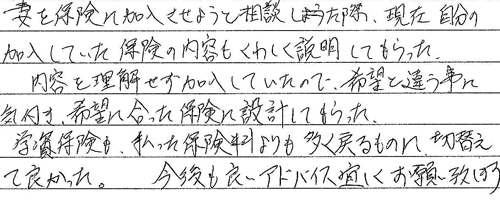 妻を保険に加入させようと相談しようた際、現在自分の
加入していた保険の内容もくわしく説明してもらった。
内容を理解せず加入していたので、希望と違う事に
気付き、希望に合った保険に設計してもらった。
学資保険も、払った保険料よりも多く戻るものに、切替え
て良かった。 今後も良いアドバイス宜しくお願い致します